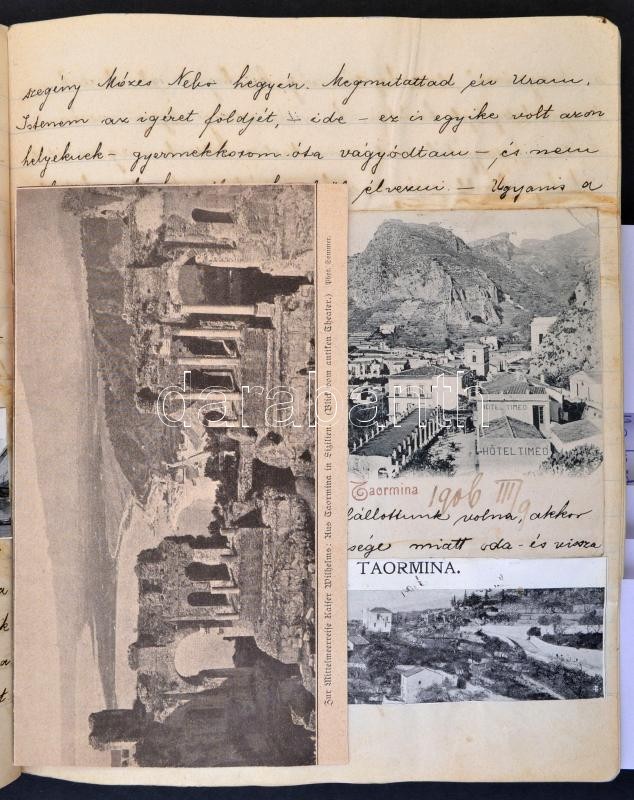 szegény Mózes Nebo hegyén. Megmutattad én Uram,
Istenem az igéret földjét, – ide – ez is egyike volt azon
helyeknek – gyermekkorom óta vágyódtam – és nem
élvezni. – Ugyanis a
Zur Mittelmeerreise Kaiser Wilhelms: Aus Taormina in Sizilien (Blick vom antiken Theater.) Phot. Sommer.
HOTEL TIMEO
HÔTEL TIMEO
Taormina 1906 III/9
állottunk volna, akkor
sége miatt oda – és vissza
TAORMINA.
darabanth